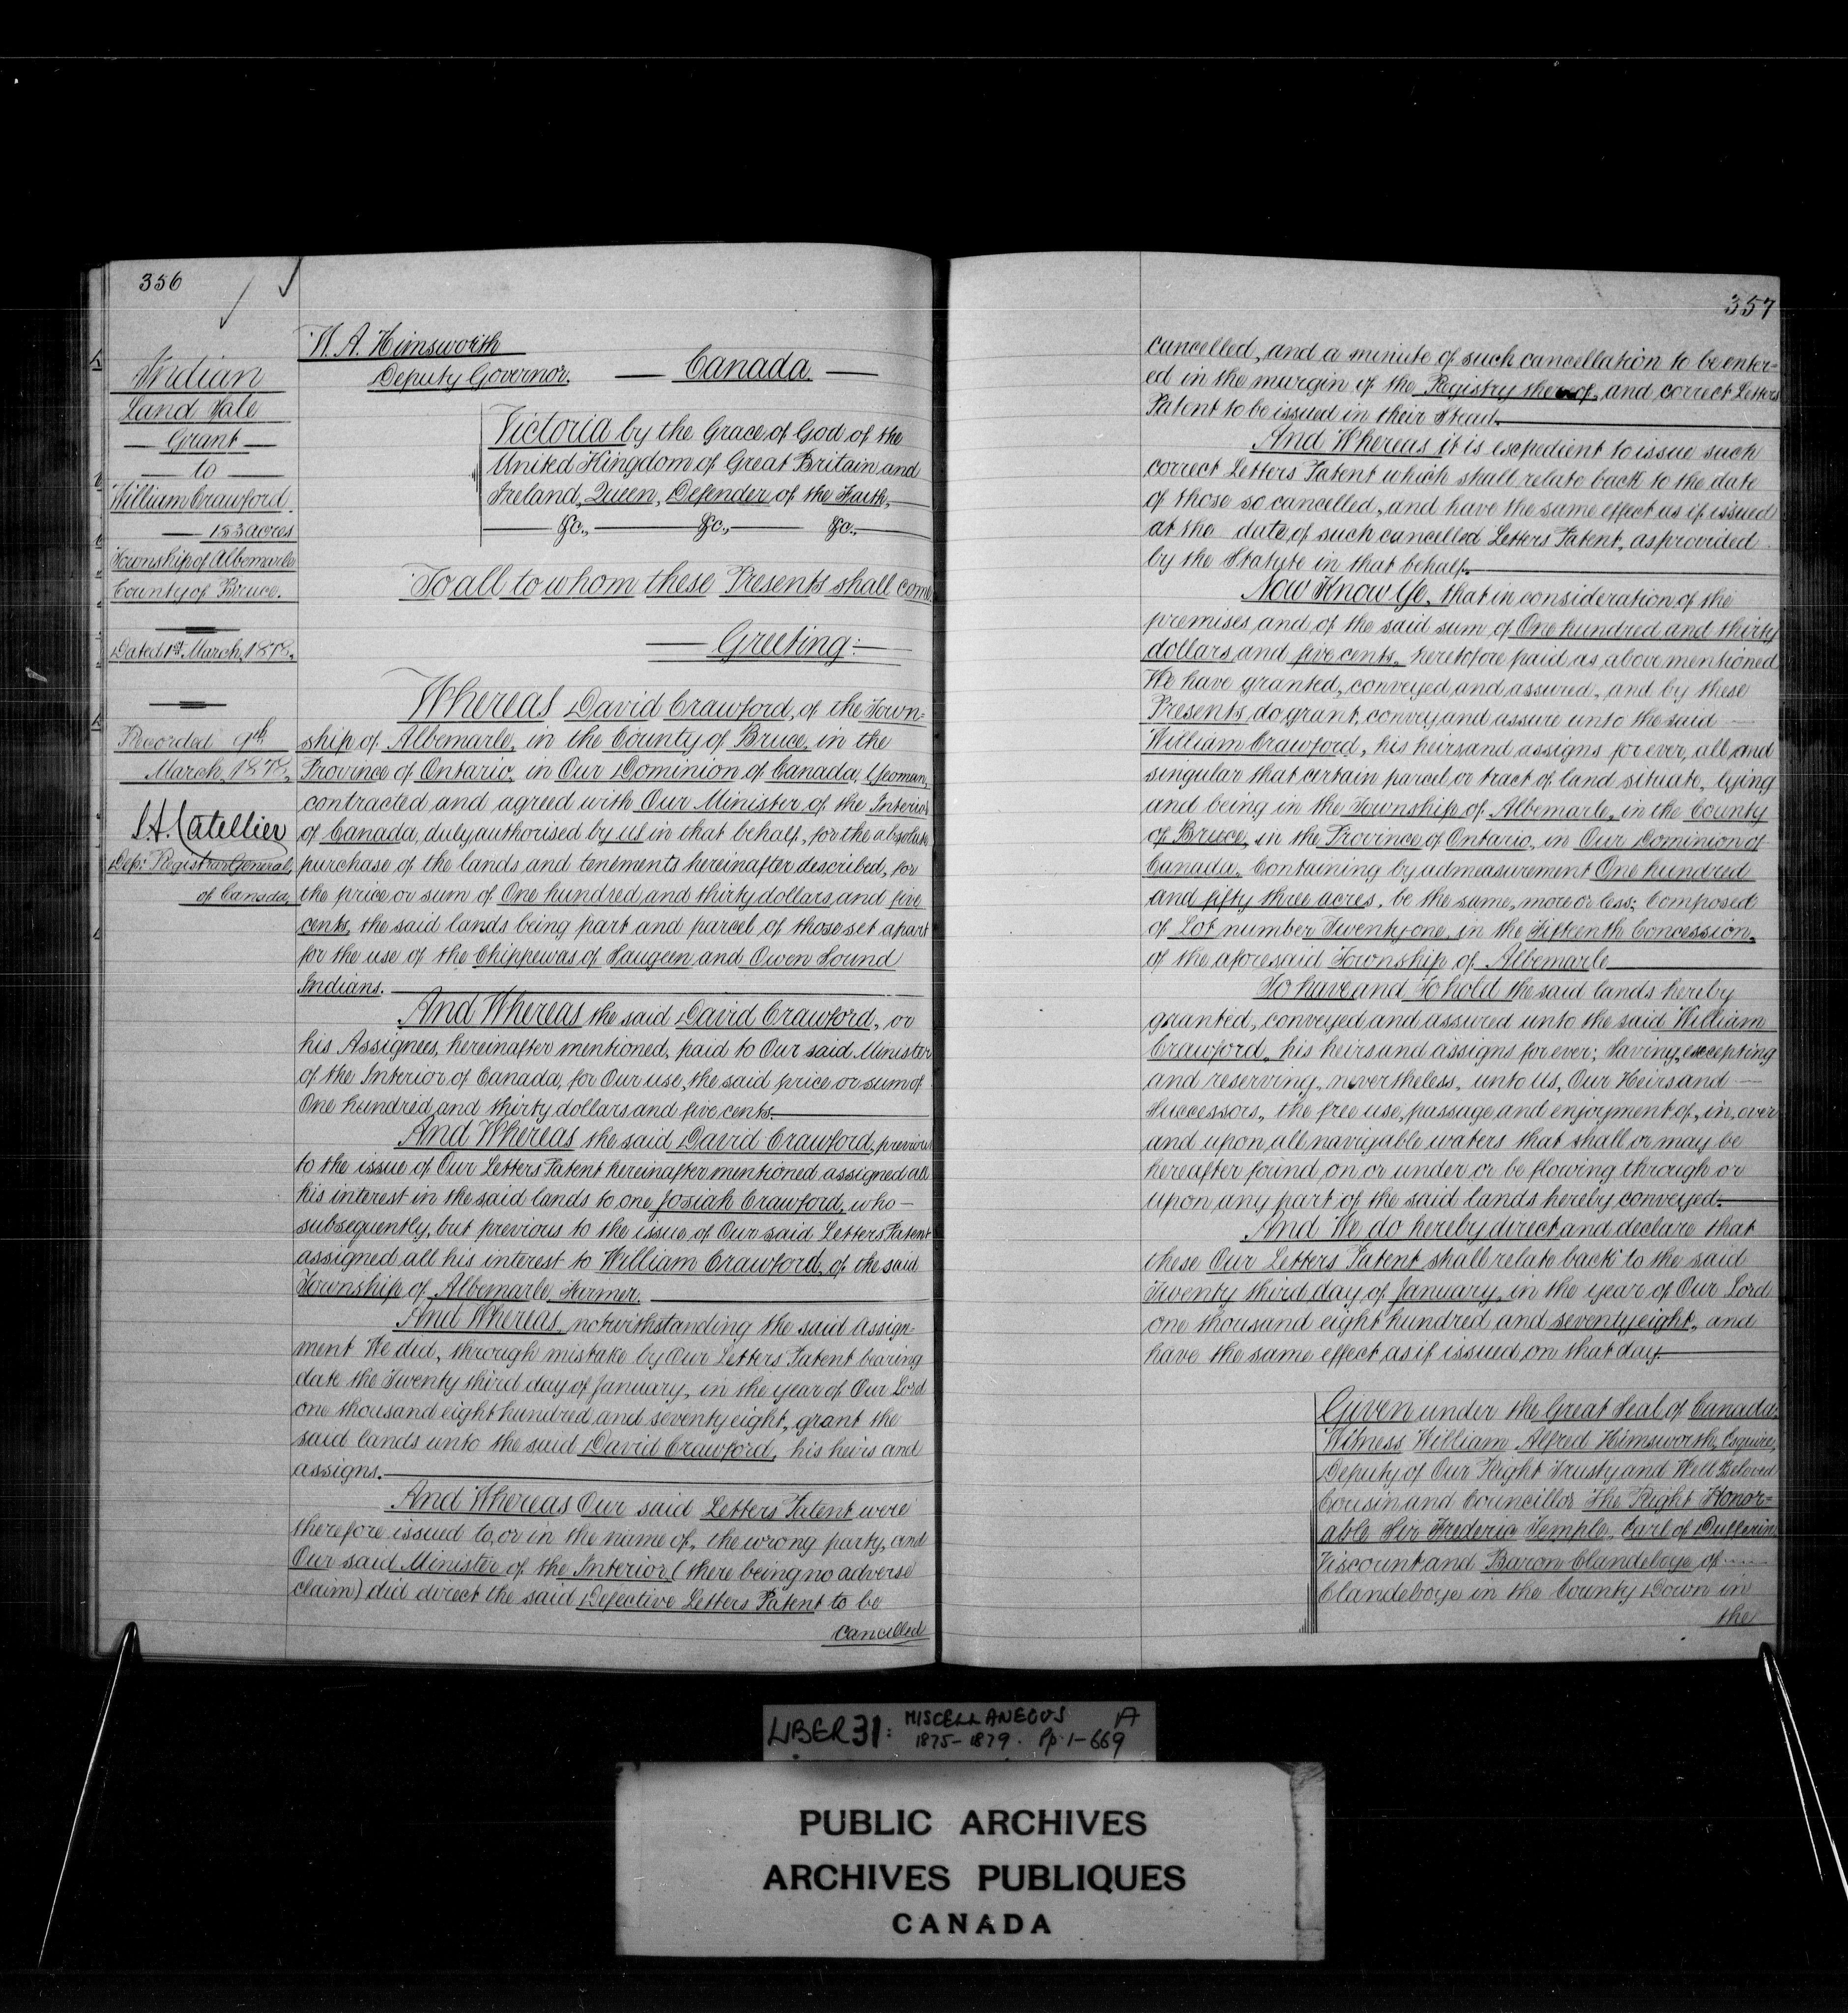 356
Indian
Land Sale
— Grant —
— to —
William Crawford.
— 153 acres
Township of Albemarle
County of Bruce.
Dated 1st March, 1878.
Recorded 9th
March, 1878.
Catellier
Dep: Registrar General,
of Canada,
W. A. Himsworth
Deputy Governor. — Canada. —
Victoria by the Grace of God of the
United Kingdom of Great Britain and
Ireland, Queen, Defender of the Faith,
— &c., — &c., — &c., —
To all to whom these Presents shall come
— Greeting: —
Whereas David Crawford, of the Town=
ship of Albemarle, in the County of Bruce, in the
Province of Ontario, in Our Dominion of Canada, Yeoman,
contracted and agreed with Our Minister of the Interior
of Canada, duly authorised by us in that behalf, for the absolute
purchase of the lands and tenements hereinafter described, for
the price or sum of One hundred and thirty dollars, and five
cents, the said lands being part and parcel of those set apart
for the use of the Chippewas of Saugeen and Owen Sound
Indians.
And Whereas the said David Crawford, or
his Assignees, hereinafter mentioned, paid to Our said Minister
of the Interior of Canada, for Our use, the said price or sum of
One hundred and thirty dollars and five cents.
And Whereas the said David Crawford, previous
to the issue of Our Letters Patent hereinafter mentioned assigned all
his interest in the said lands to one Josiah Crawford, who —
subsequently, but previous to the issue of Our said Letters Patent
assigned all his interest to William Crawford, of the said
Township of Albemarle, Farmer.
And Whereas, notwithstanding the said assign=
ment We did, through mistake by Our Letters Patent bearing
date the Twenty third day of January, in the year of Our Lord
one thousand eight hundred and seventy eight, grant the
said lands unto the said David Crawford, his heirs and
assigns.
And Whereas Our said Letters Patent were
therefore issued to, or in the name of, the wrong party, and
Our said Minister of the Interior (there being no adverse
claim) did direct the said Defective Letters Patent to be
cancelled
357
cancelled, and a minute of such cancellation to be enter=
ed in the margin of the Registry thereof, and correct Letters
Patent to be issued in their stead.
And Whereas it is expedient to issue such
correct Letters Patent which shall relate back to the date
of those so cancelled, and have the same effect as if issued
at the date of such cancelled Letters Patent, as provided
by the Statute in that behalf.
Now Know Ye, that in consideration of the
premises, and of the said sum of One hundred and thirty
dollars and five cents, heretofore paid as above mentioned
We have granted, conveyed and assured, and by these
Presents, do grant, convey and assure unto the said —
William Crawford, his heirs and assigns for ever, all and
singular that certain parcel or tract of land situate, lying
and being in the Township of Albemarle, in the County
of Bruce, in the Province of Ontario, in Our Dominion of
Canada, Containing by admeasurement One hundred
and fifty three acres, be the same, more or less; Composed
of Lot number Twenty one, in the Fifteenth Concession,
of the aforesaid Township of Albemarle
To have and To hold the said lands hereby
granted, conveyed and assured unto the said William
Crawford, his heirs and assigns for ever; Saving, excepting
and reserving, nevertheless, unto Us, Our Heirs and —
Successors, the free use, passage and enjoyment of, in, over
and upon, all navigable waters that shall or may be
hereafter found on or under or be flowing through or
upon any part of the said lands hereby conveyed.
And We do hereby direct and declare that
these Our Letters Patent shall relate back to the said
Twenty third day of January, in the year of Our Lord
one thousand eight hundred and seventy eight, and
have the same effect as if issued on that day.
Given under the Great Seal of Canada:
Witness William Alfred Himsworth, Esquire,
Deputy of Our Right Trusty and Well Beloved
Cousin and Councillor The Right Honor=
able Sir Frederic Temple, Earl of Dufferin
Viscount and Baron Clandeboye of —
Clandeboye in the County Down in
the
LIBER 31: MISCELLANEOUS A
1875-1879. Pp. 1-669
PUBLIC ARCHIVES
ARCHIVES PUBLIQUES
CANADA